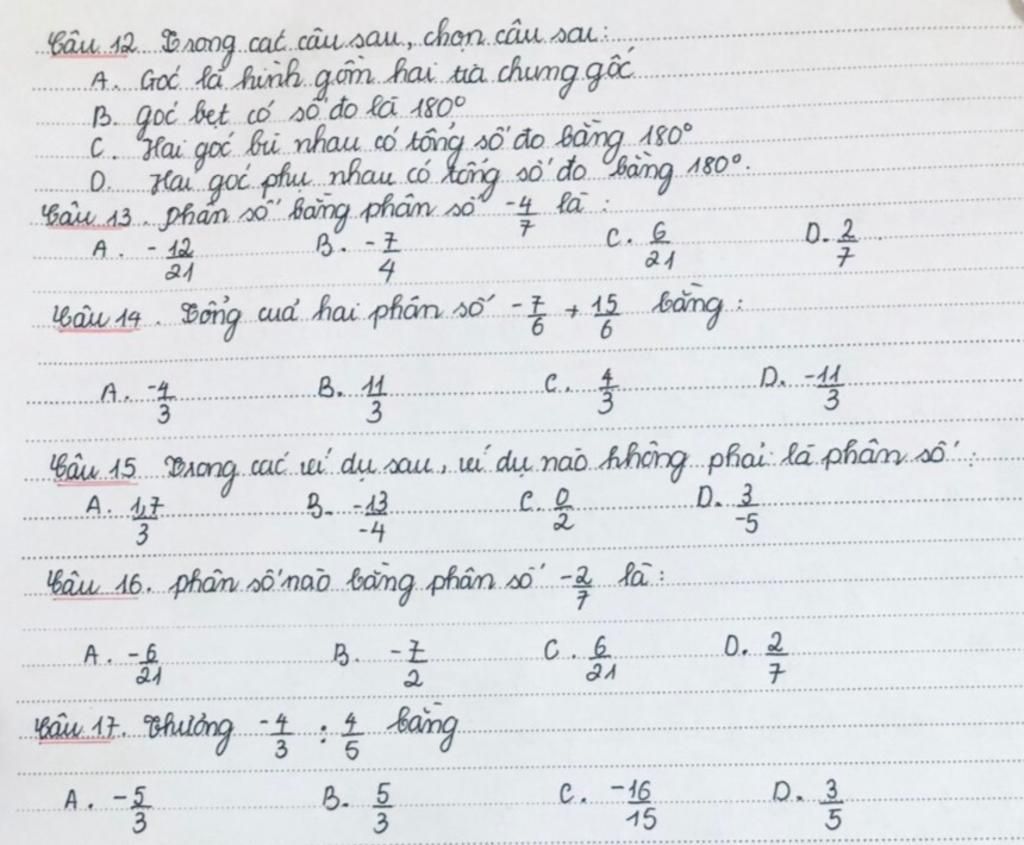 Câu 12 Trong các câu sau, chọn câu sai:
A. Góc là hình gồm hai tia chung gốc
B. góc bẹt có số đo là 180°
C. Hai góc bù nhau có tổng số đo bằng 180°
D. Hai góc phụ nhau có tổng số đo bằng 180°.
Câu 13. phân số bằng phân số -4/7 là :
A. -12/21 B. -7/4 C. 6/21 D. 2/7
Câu 14. Tổng của hai phân số -7/6 + 15/6 bằng:
A. -4/3 B. 11/3 C. 4/3 D. -11/3
Câu 15 Trong các ví dụ sau, ví dụ nào không phải là phân số :
A. 1,7/3 B. -13/-4 C. 0/2 D. 3/-5
Câu 16. phân số nào bằng phân số -2/7 là :
A. -6/21 B. -7/2 C. 6/21 D. 2/7
Câu 17. Thương -4/3 : 4/5 bằng
A. -5/3 B. 5/3 C. -16/15 D. 3/5